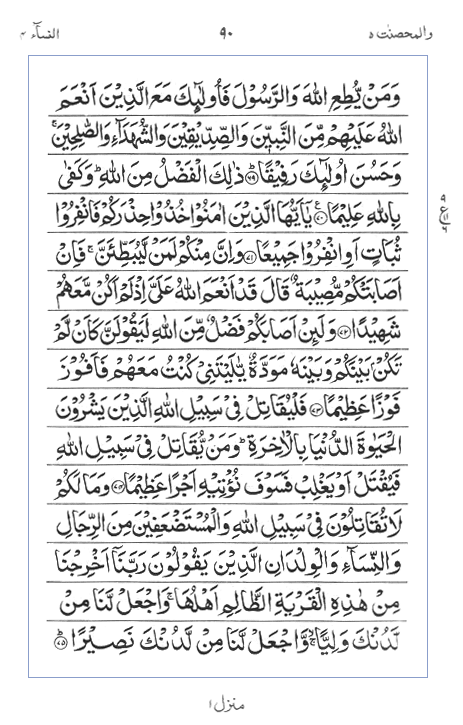 والمحصنت ٥ ٩٠ النسآء ٤
وَمَنْ يُّطِعِ اللّٰهَ وَالرَّسُوْلَ فَاُولٰٓئِكَ مَعَ الَّذِيْنَ اَنْعَمَ
اللّٰهُ عَلَيْهِمْ مِّنَ النَّبِيّٖنَ وَالصِّدِّيْقِيْنَ وَالشُّهَدَآءِ وَالصّٰلِحِيْنَ ۚ
وَحَسُنَ اُولٰٓئِكَ رَفِيْقًا ؕ﴿٦٩﴾ ذٰلِكَ الْفَضْلُ مِنَ اللّٰهِ ؕ وَكَفٰى
بِاللّٰهِ عَلِيْمًا ﴿٧٠﴾ ع يٰۤاَيُّهَا الَّذِيْنَ اٰمَنُوْا خُذُوْا حِذْرَكُمْ فَانْفِرُوْا
ثُبَاتٍ اَوِ انْفِرُوْا جَمِيْعًا ﴿٧١﴾ وَاِنَّ مِنْكُمْ لَمَنْ لَّيُبَطِّئَنَّ ۚ فَاِنْ
اَصَابَتْكُمْ مُّصِيْبَةٌ قَالَ قَدْ اَنْعَمَ اللّٰهُ عَلَيَّ اِذْ لَمْ اَكُنْ مَّعَهُمْ
شَهِيْدًا ﴿٧٢﴾ وَلَئِنْ اَصَابَكُمْ فَضْلٌ مِّنَ اللّٰهِ لَيَقُوْلَنَّ كَاَنْ لَّمْ
تَكُنْۢ بَيْنَكُمْ وَبَيْنَهٗ مَوَدَّةٌ يّٰلَيْتَنِيْ كُنْتُ مَعَهُمْ فَاَفُوْزَ
فَوْزًا عَظِيْمًا ﴿٧٣﴾ فَلْيُقَاتِلْ فِيْ سَبِيْلِ اللّٰهِ الَّذِيْنَ يَشْرُوْنَ
الْحَيٰوةَ الدُّنْيَا بِالْاٰخِرَةِ ؕ وَمَنْ يُّقَاتِلْ فِيْ سَبِيْلِ اللّٰهِ
فَيُقْتَلْ اَوْ يَغْلِبْ فَسَوْفَ نُؤْتِيْهِ اَجْرًا عَظِيْمًا ﴿٧٤﴾ وَمَا لَكُمْ
لَا تُقَاتِلُوْنَ فِيْ سَبِيْلِ اللّٰهِ وَالْمُسْتَضْعَفِيْنَ مِنَ الرِّجَالِ
وَالنِّسَآءِ وَالْوِلْدَانِ الَّذِيْنَ يَقُوْلُوْنَ رَبَّنَاۤ اَخْرِجْنَا
مِنْ هٰذِهِ الْقَرْيَةِ الظَّالِمِ اَهْلُهَا ۚ وَاجْعَلْ لَّنَا مِنْ
لَّدُنْكَ وَلِيًّا ۙ وَّاجْعَلْ لَّنَا مِنْ لَّدُنْكَ نَصِيْرًا ؕ﴿٧٥﴾
منزل ١